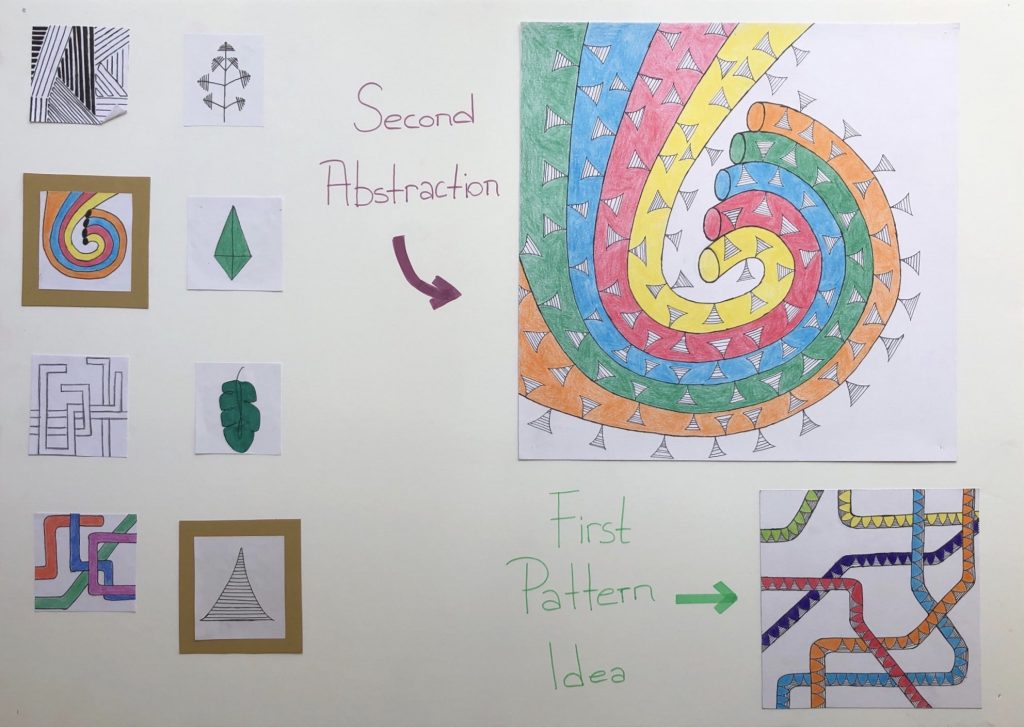 Second
Abstraction
First
Pattern
Idea